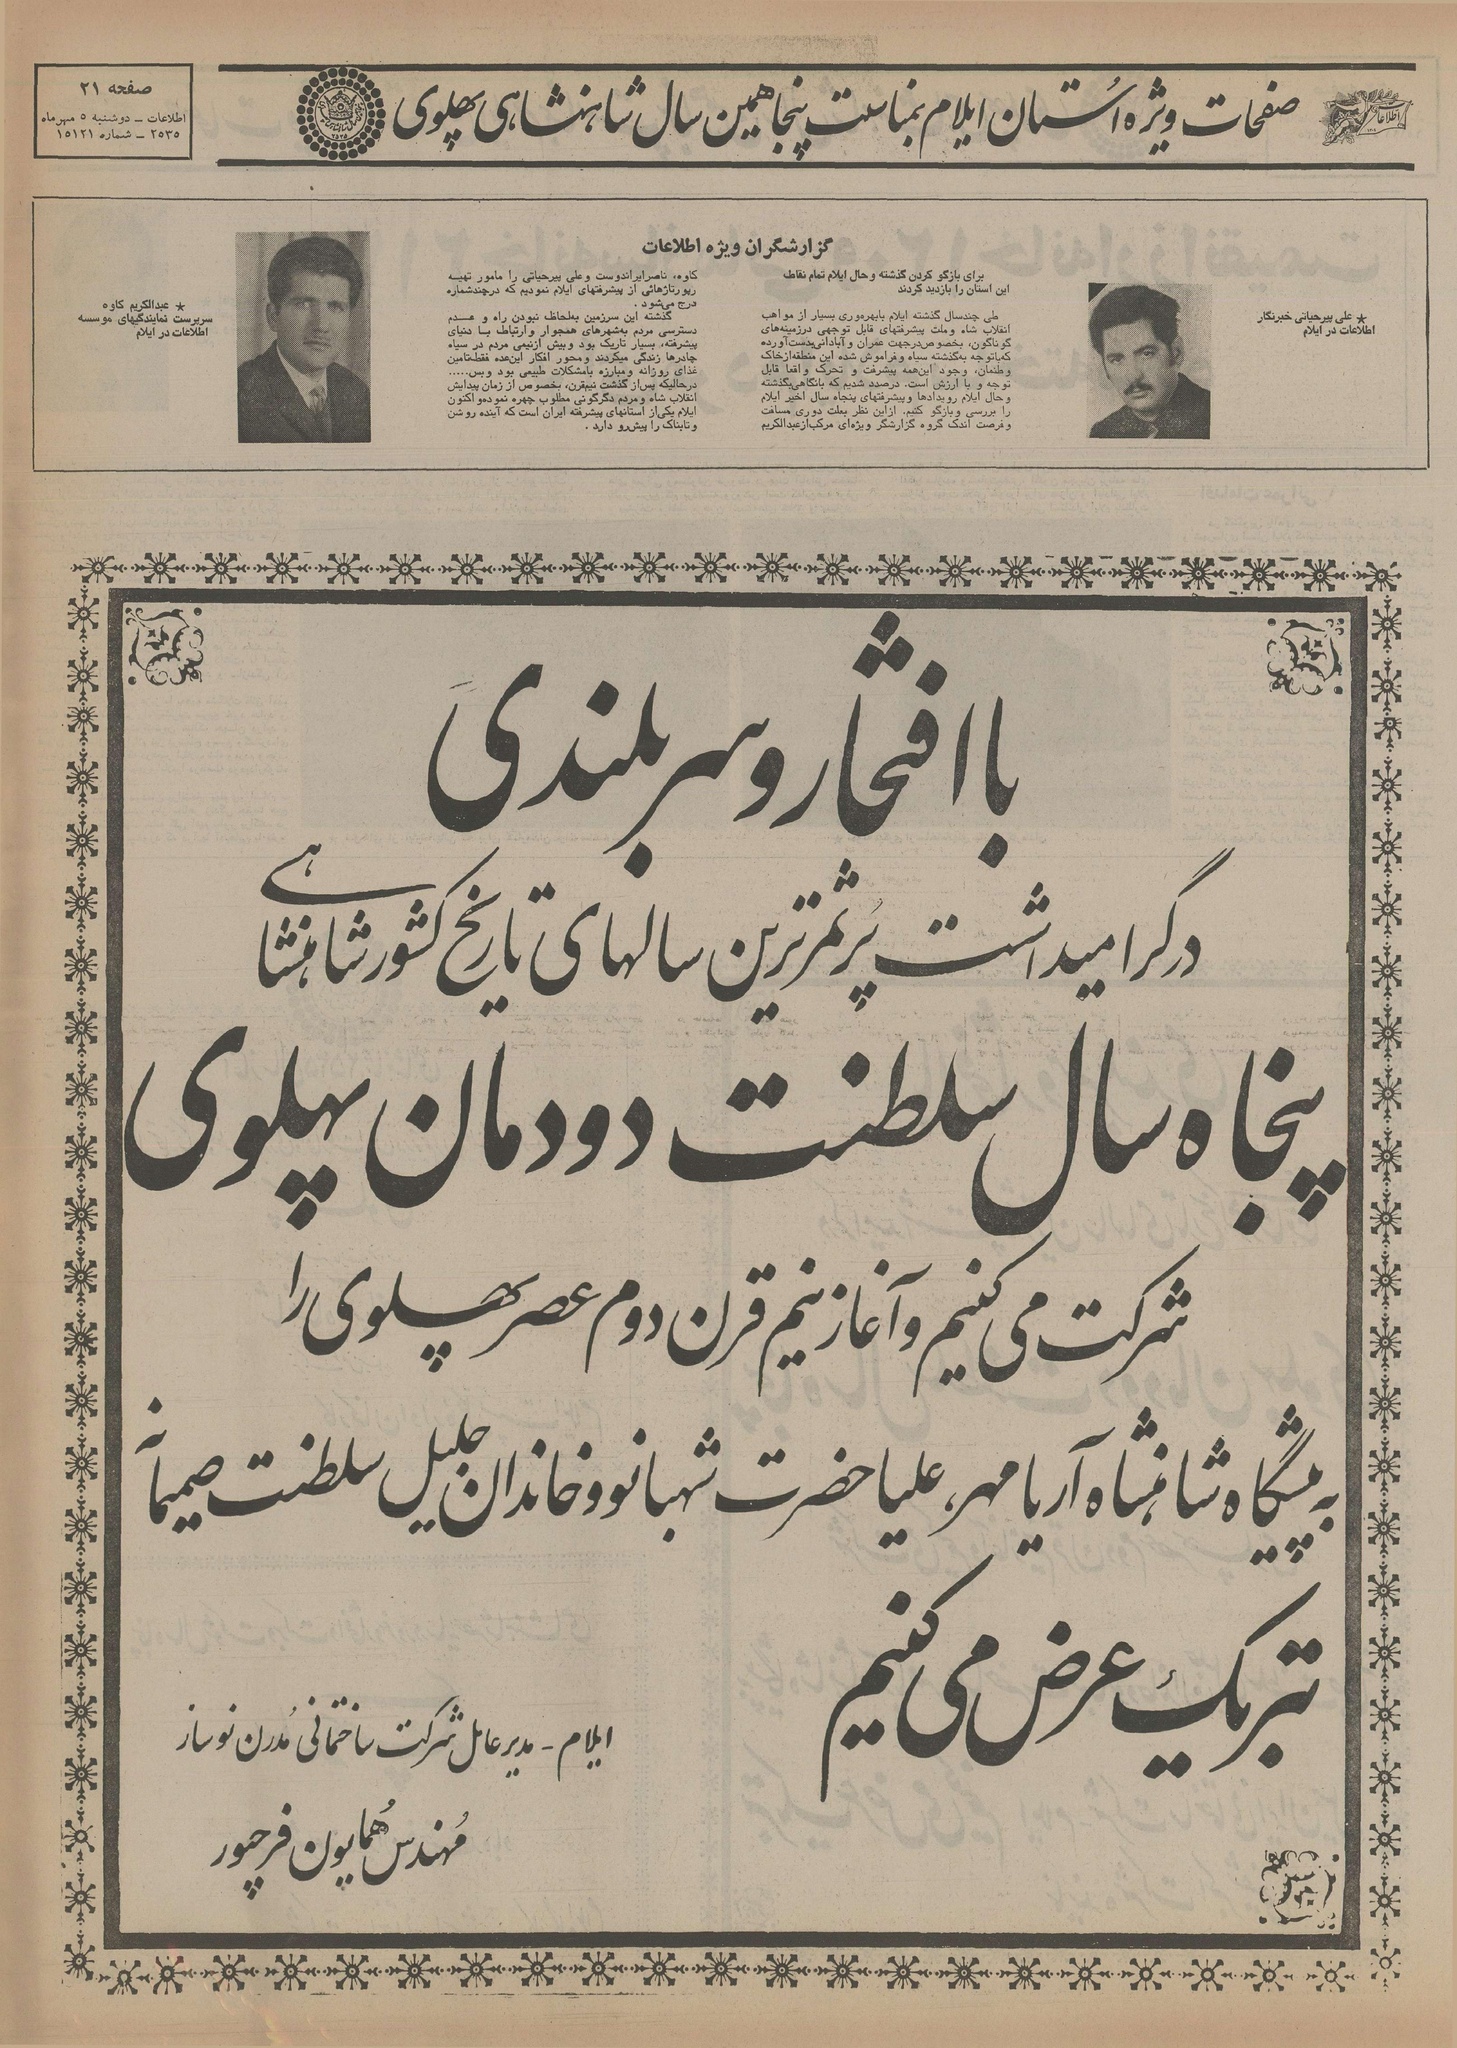 صفحات ویژه استان ایلام بمناسبت پنجاهمین سال شاهنشاهی پهلوی
صفحه ۲۱
اطلاعات ـ دوشنبه ۵ مهرماه
۲۵۳۵ ـ شماره ۱۵۱۲۱
گزارشگران ویژه اطلاعات
★ علی پیرحیاتی خبرنگار
اطلاعات در ایلام
برای بازگو کردن گذشته و حال ایلام تمام نقاط
این استان را بازدید کردند
طی چندسال گذشته ایلام بابهره‌وری بسیار از مواهب
انقلاب شاه وملت پیشرفتهای قابل توجهی درزمینه‌های
گوناگون، بخصوص‌درجهت عمران و آبادانی‌بدست‌آورده
که‌باتوجه به‌گذشته سیاه وفراموش شده این منطقه‌ازخاک
وطنمان، وجود این‌همه پیشرفت و تحرک واقعا قابل
توجه و با ارزش است. درصدد شدیم که بانگاهی‌بگذشته
وحال ایلام رویدادها و پیشرفتهای پنجاه سال اخیر ایلام
را بررسی وبازگو کنیم. ازاین نظر بعلت دوری مسافت
وفرصت اندک گروه گزارشگر ویژه‌ای مرکب‌ازعبدالکریم
کاوه، ناصرایراندوست وعلی پیرحیاتی را مامور تهیه
رپورتاژهائی از پیشرفتهای ایلام نمودیم که درچندشماره
درج می‌شود.
گذشته این سرزمین به‌لحاظ نبودن راه و عدم
دسترسی مردم به‌شهرهای همجوار وارتباط با دنیای
پیشرفته، بسیار تاریک بود وبیش ازنیمی مردم در سیاه
چادرها زندگی میکردند ومحور افکار این‌عده فقط‌تامین
غذای روزانه و مبارزه بامشکلات طبیعی بود وبس.....
درحالیکه پس‌از گذشت نیم‌قرن، بخصوص از زمان پیدایش
انقلاب شاه و مردم دگرگونی مطلوب چهره نموده‌و اکنون
ایلام یکی‌از استانهای پیشرفته ایران است که آینده روشن
وتابناک را پیش‌رو دارد.
★ عبدالکریم کاوه
سرپرست نمایندگیهای موسسه
اطلاعات در ایلام
با افتخار و سربلندی
در گرامیداشت پُرثمرترین سالهای تاریخ کشور شاهنشاهی
پنجاه سال سلطنت دودمان پهلوی
شرکت می کنیم و آغاز نیم قرن دوم عصر پهلوی را
به پیشگاه شاهنشاه آریامهر، علیاحضرت شهبانو و خاندان جلیل سلطنت صمیمانه
تبریک عرض می کنیم
ایلام ـ مدیرعامل شرکت ساختمانی مُدرن نوساز
مُهندس هُمایون فرجپور